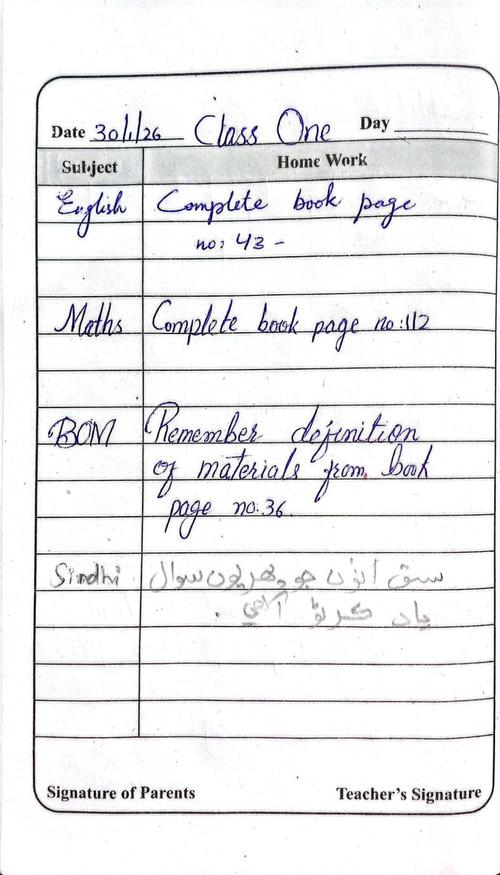 Date 30/1/26 Class One Day
Subject Home Work
English Complete book page
no: 43 -
Maths Complete book page no:112
BOM Remember definition
of materials from book
page no:36.
Sindhi سبق اٺون جو پھريون سوال
ياد ڪرڻو آھي.
Signature of Parents Teacher's Signature